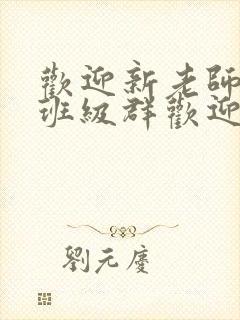 歡迎新老師
班級群歡迎
劉元慶